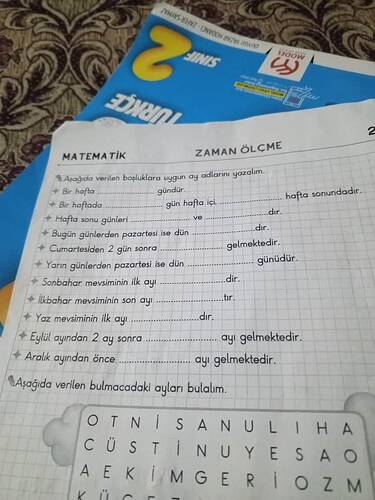 ZAFER SAYMAZ
2
SINIF
MODEL
TÜRKÇE
2
MATEMATİK
ZAMAN ÖLÇME
Aşağıda verilen boşluklara uygun ay adlarını yazalım.
Bir hafta .................... gündür.
Bir haftada .................... gün hafta içi, .................... hafta sonundadır.
Hafta sonu günleri .................... ve .................... dır.
Bugün günlerden pazartesi ise dün .................... dır.
Cumartesiden 2 gün sonra .................... gelmektedir.
Yarın günlerden pazartesi ise dün .................... günüdür.
Sonbahar mevsiminin ilk ayı .................... dir.
İlkbahar mevsiminin son ayı .................... tır.
Yaz mevsiminin ilk ayı .................... dır.
Eylül ayından 2 ay sonra .................... ayı gelmektedir.
Aralık ayından önce .................... ayı gelmektedir.
Aşağıda verilen bulmacadaki ayları bulalım.
O T N İ S A N U L I H A
C Ü S T İ N U Y E S A O
A E K İ M G E R İ O Z M